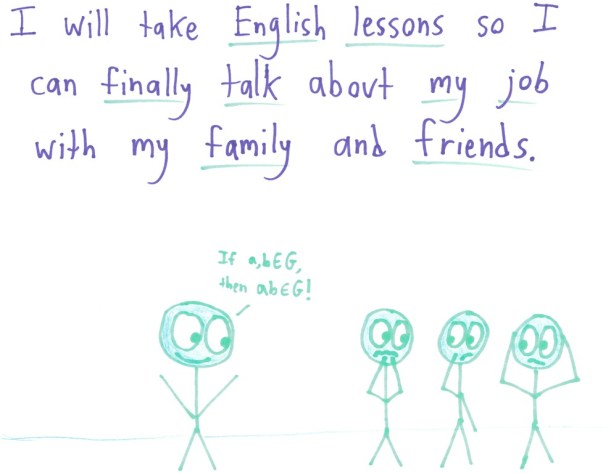 I will take English lessons so I
can finally talk about my job
with my family and friends.
If a,b∈G,
then ab∈G!